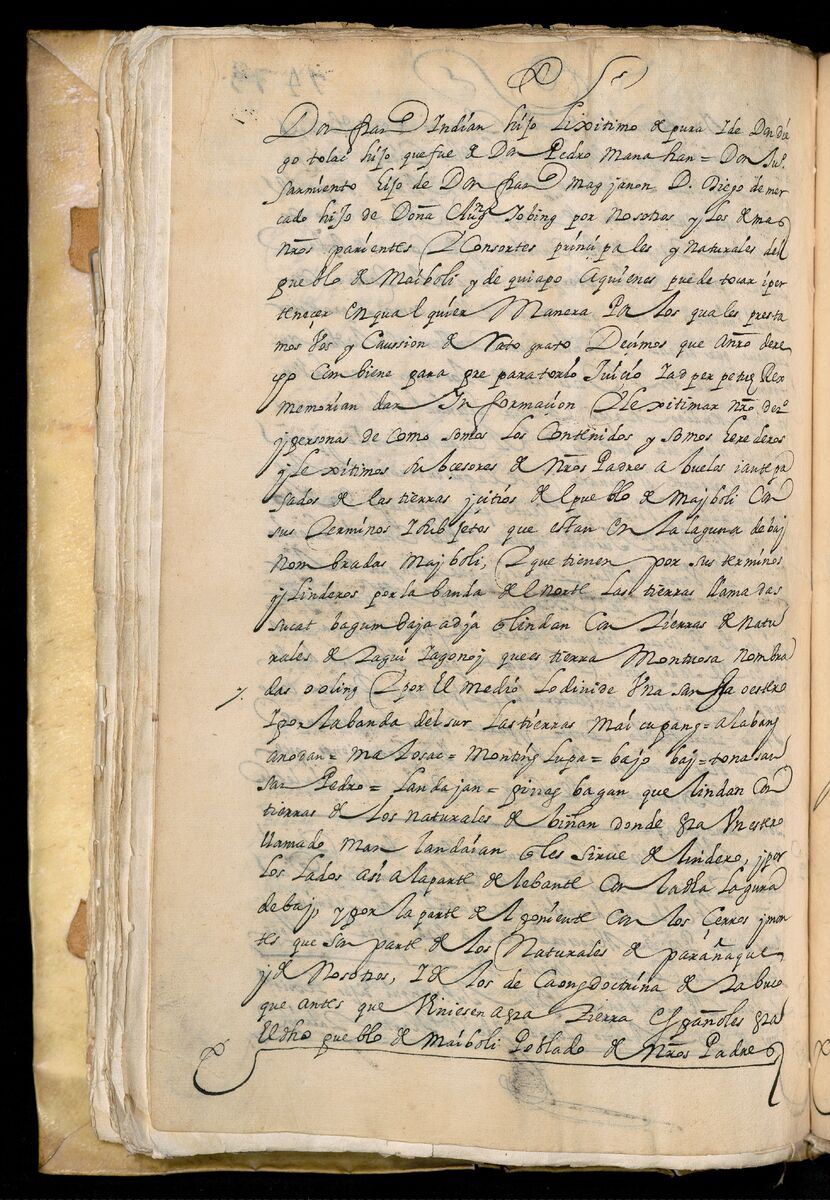 Don fran^co Indian hijo Lixitimo de pura I de Don die
go tolac hijo que fue de Don Pedro Mana han = Don Ju^o.
Sarmiento hijo de Don fran^co magjanon D. Diego de mer
cado hijo de Doña Jobing por Nosotros y los demas
nr̃os parientes Consortes prinçipales y naturales del
pueblo de Maiboli y de quiapo aquienes puede tocar i per
tenecer en qual quier Manera Por los quales presta
mos Vos y Caussion de Rato grato Deçimos que a nr̃o dere
Combiene para pre paratorio Juicio I ad perpetuã Rex
memorian dar Informacion lexitimar nr̃o der^o.
y personas de como somos los Contenidos y somos herederos
y lexitimos subçesores de Nr̃os Padres abuelos i ante pa
sados de las tierras y citios de el pueblo de Majboli Con
sus terminos que estan en la laguna de baj
nombradas Majboli, que tienen por sus terminos
y linderos por la banda de el norte las tierras llamadas
sucat bagum daja adja lindan Con tierras de natu
rales de tagui que es tierra Montuosa nombra
das ooling por El medio lo dinide Vna sanja o estero
I por la banda del sur las tierras mai cupang = alabanj
= ma losac = Monting Lupa = bajo baj = tonasan
san Pedro = Landajan = bagan que lindan Con
tierras de los naturales de biñan donde Vn estero
llamado man landaian les sirue de lindero, y por
los lados asi a la parte de lebante Con la dha Laguna
de baj, y por la parte del poniente Con los Cerros y mon
tes que son parte de los Naturales de parañaque
y de Nosotros, I de los de doctrina de tabuco
que antes que Viniesen a tierra Españoles
El dho pueblo de Maiboli Poblado de Nr̃os Padres